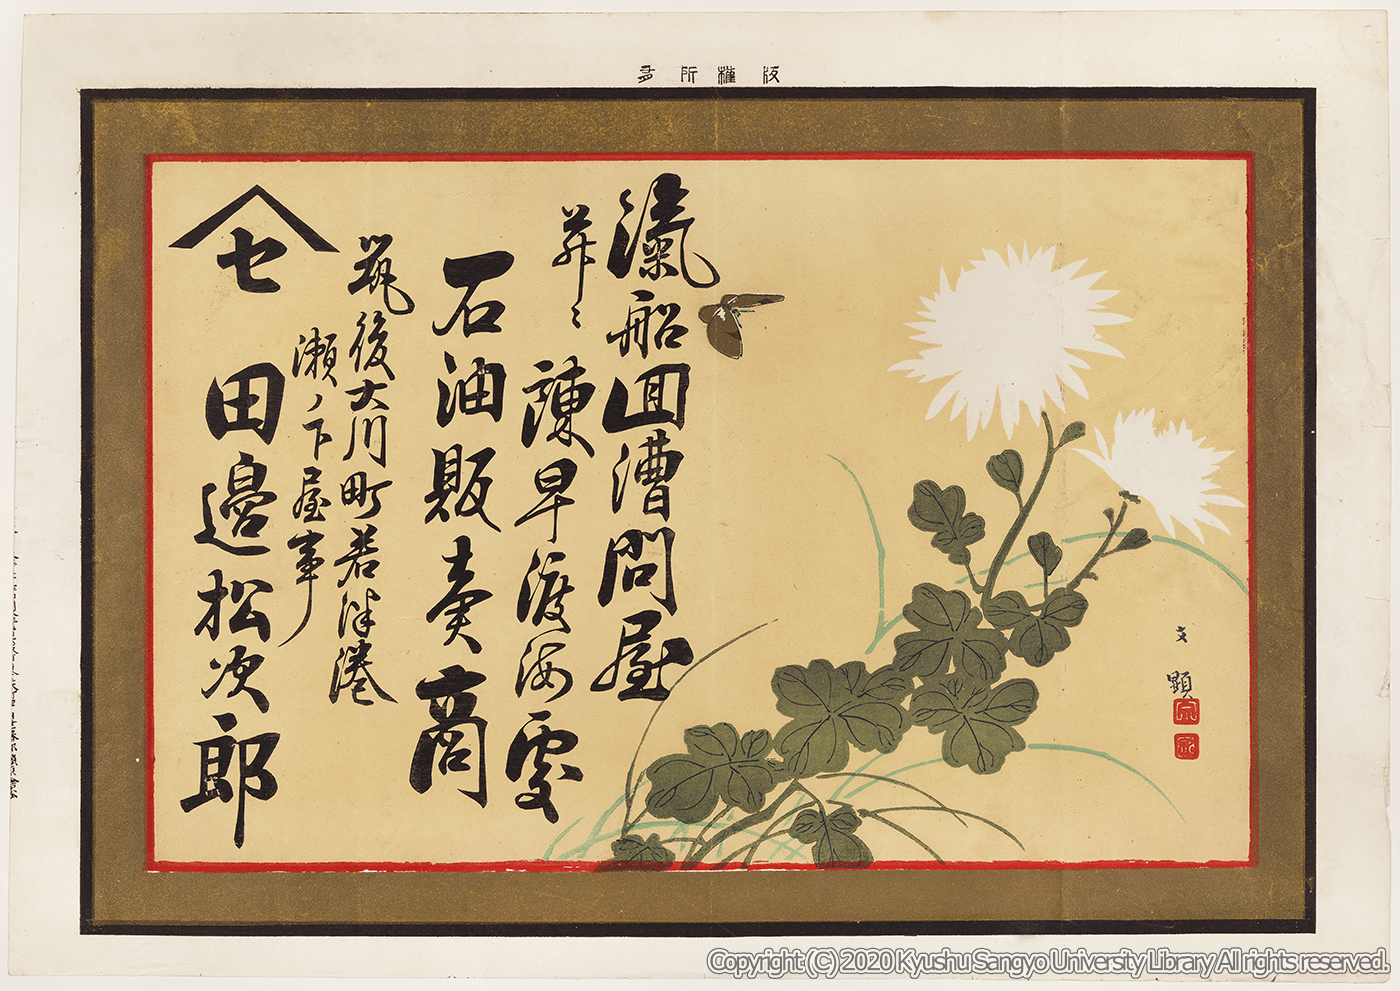 版權所有
滊船廻漕問屋
并ニ諫早渡海処
石油販賣商
筑後大川町若津港
瀬ノ下屋事
セ 田邊松次郎
文顕
Copyright (C) 2020 Kyushu Sangyo University Library All rights reserved.